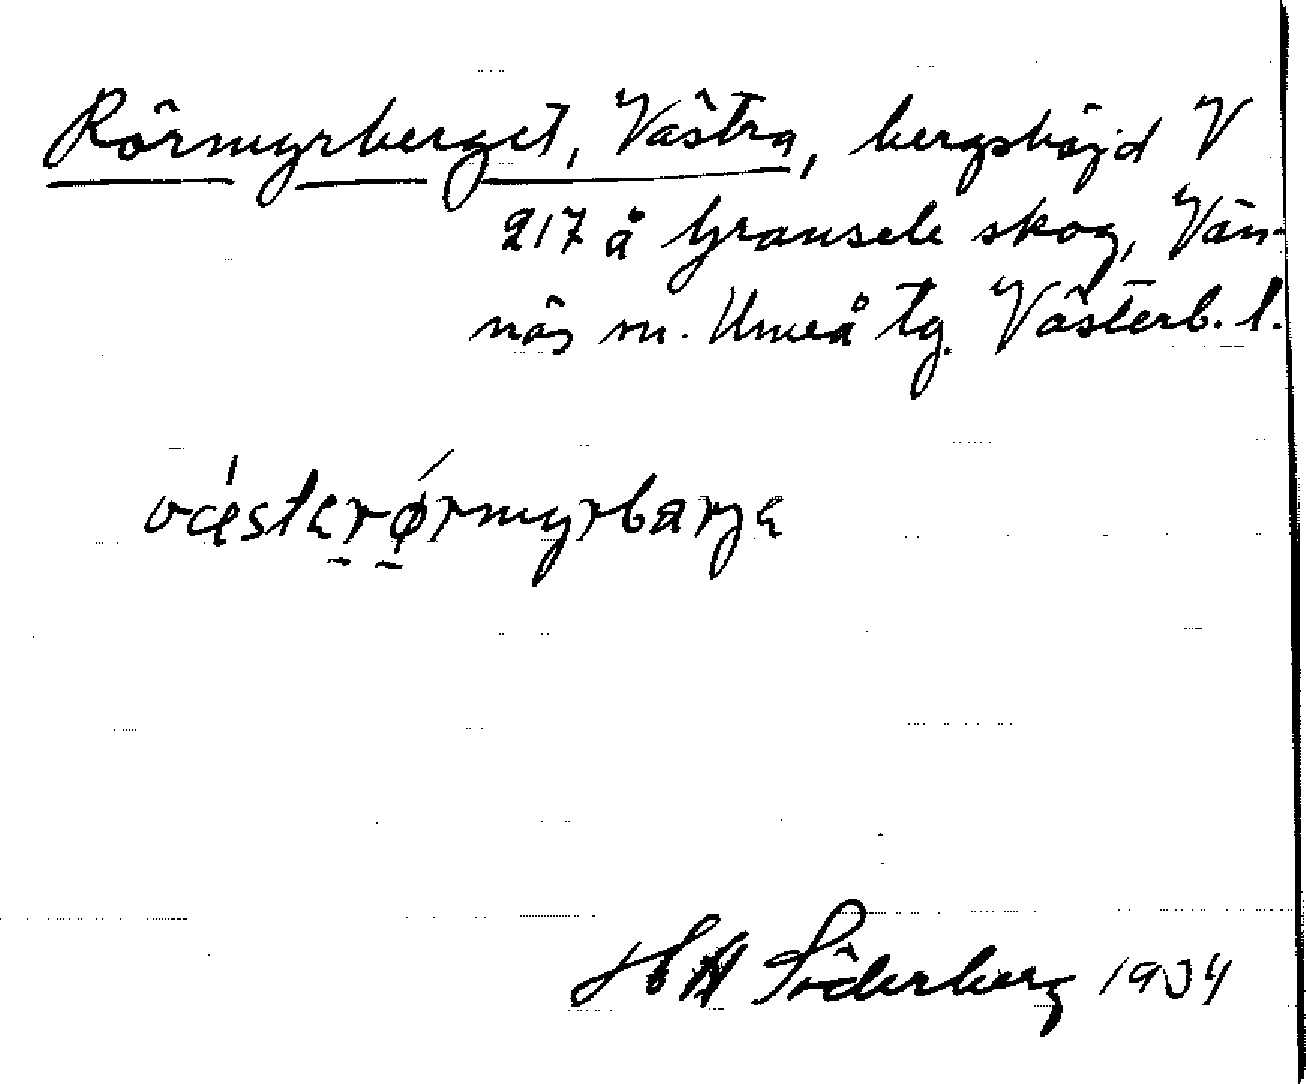 Rörmyrberget, Västra, bergshöjd V
217 å Gransele skog, Vän-
näs sn. Umeå tg. Västerb. l.
væstɛrørmyrbarjɛ
Söderberg 1934